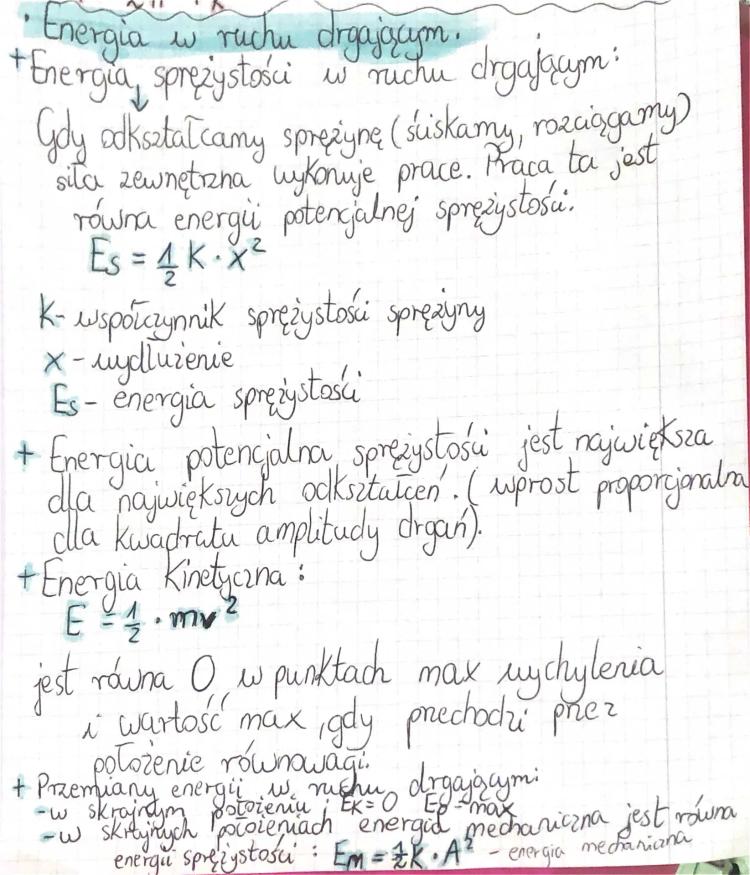 · Energia w ruchu drgającym.
+ Energia sprężystości w ruchu drgającym:
↓
Gdy odkształcamy sprężynę (ściskamy, rozciągamy)
siła zewnętrzna wykonuje prace. Praca ta jest
równa energii potencjalnej sprężystości.
Es = 1/2 K · x²
K - współczynnik sprężystości sprężyny
x - wydłużenie
Es - energia sprężystości
+ Energia potencjalna sprężystości jest największa
dla największych odkształceń. (wprost proporcjonalna
dla kwadratu amplitudy drgań).
+ Energia kinetyczna:
E = 1/2 · mv²
jest równa 0 w punktach max wychylenia
i wartość max, gdy przechodzi przez
położenie równowagi.
+ Przemiany energii w ruchu drgającym:
- w skrajnym położeniu; EK = 0 Es - max
- w skrajnych położeniach energia mechaniczna jest równa
energii sprężystości: Em = 1/2 K · A² - energia mechaniczna